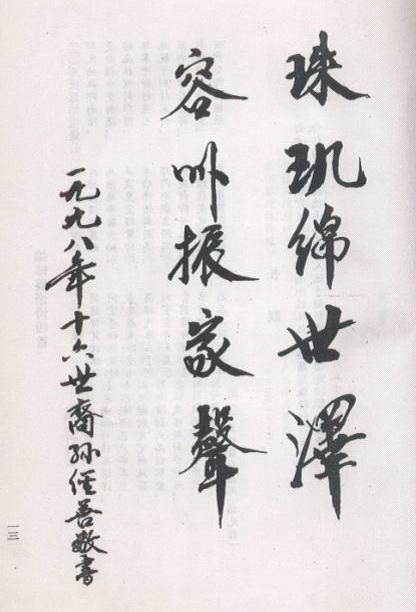 珠玑绵世泽
容州振家聲
一九九八年十六世裔孙经善敬書
一三